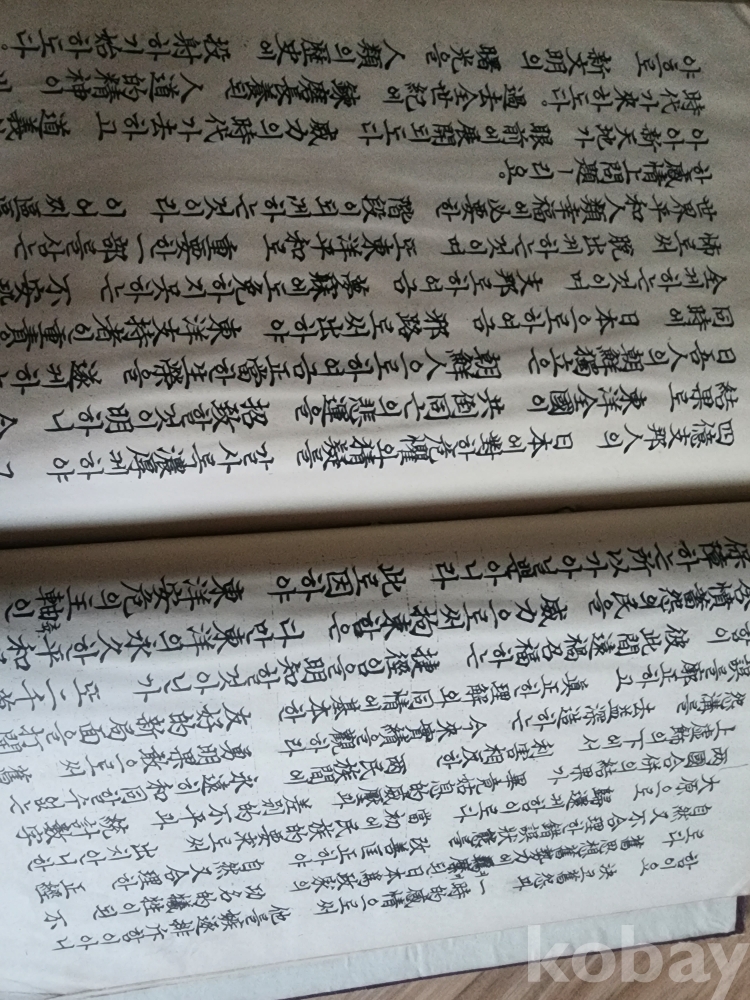 함이오 決코舊怨과 一時的感情으로써 他를嫉逐排斥함이아니
로다 舊思想舊勢力에羈縻된日本爲政家의 功名的犧牲이된 不
自然又不合理한錯誤狀態를 改善匡正하야 自然又合理한 正經
大原으로 歸還케함이로다 當初에民族的要求로써 出치아니한
兩國合倂의結果가 畢竟姑息的威壓과 差別的不平과 統計數字
上虛飾의下에서 利害相反한 兩民族間에 永遠히和同할수업는
怨溝를 去益深造하는 今來實績을觀하라 勇明果敢으로써 舊
誤를廓正하고 眞正한理解와同情에基本한 友好的新局面을打開
함이 彼此間遠禍召福하는 捷徑임을明知할것아닌가 또二千萬
含憤蓄怨의民을 威力으로써拘束함은 다만東洋의永久한平和
保障하는所以가아닐뿐아니라 此로因하야 東洋安危의主軸인
四億支那人의 日本에對한危懼와猜疑를 갈사록濃厚케하야 그
結果로 東洋全局이 共倒同亡의悲運을 招致할것이明하니 今
日吾人의朝鮮獨立은 朝鮮人으로하여금正當한生榮을 遂케하는
同時에 日本으로하여금 邪路로써出하야 東洋支持者인重責을
全케하는것이며 支那로하여금 夢寐에도免하지못하는 不安恐
怖로써 脫出케하는것이며 또東洋平和로 重要한一部를삼는
世界平和 人類幸福에必要한 階段이되게하는것이라 이어찌區區
한感情上問題ㅣ리오。
아아 新天地가 眼前에展開되도다 威力의時代가去하고 道義
時代가來하도다。過去全世紀에 鍊磨長養된 人道的精神이
야흐로 新文明의 曙光을 人類의歷史에 投射하기始하도다。
kobay